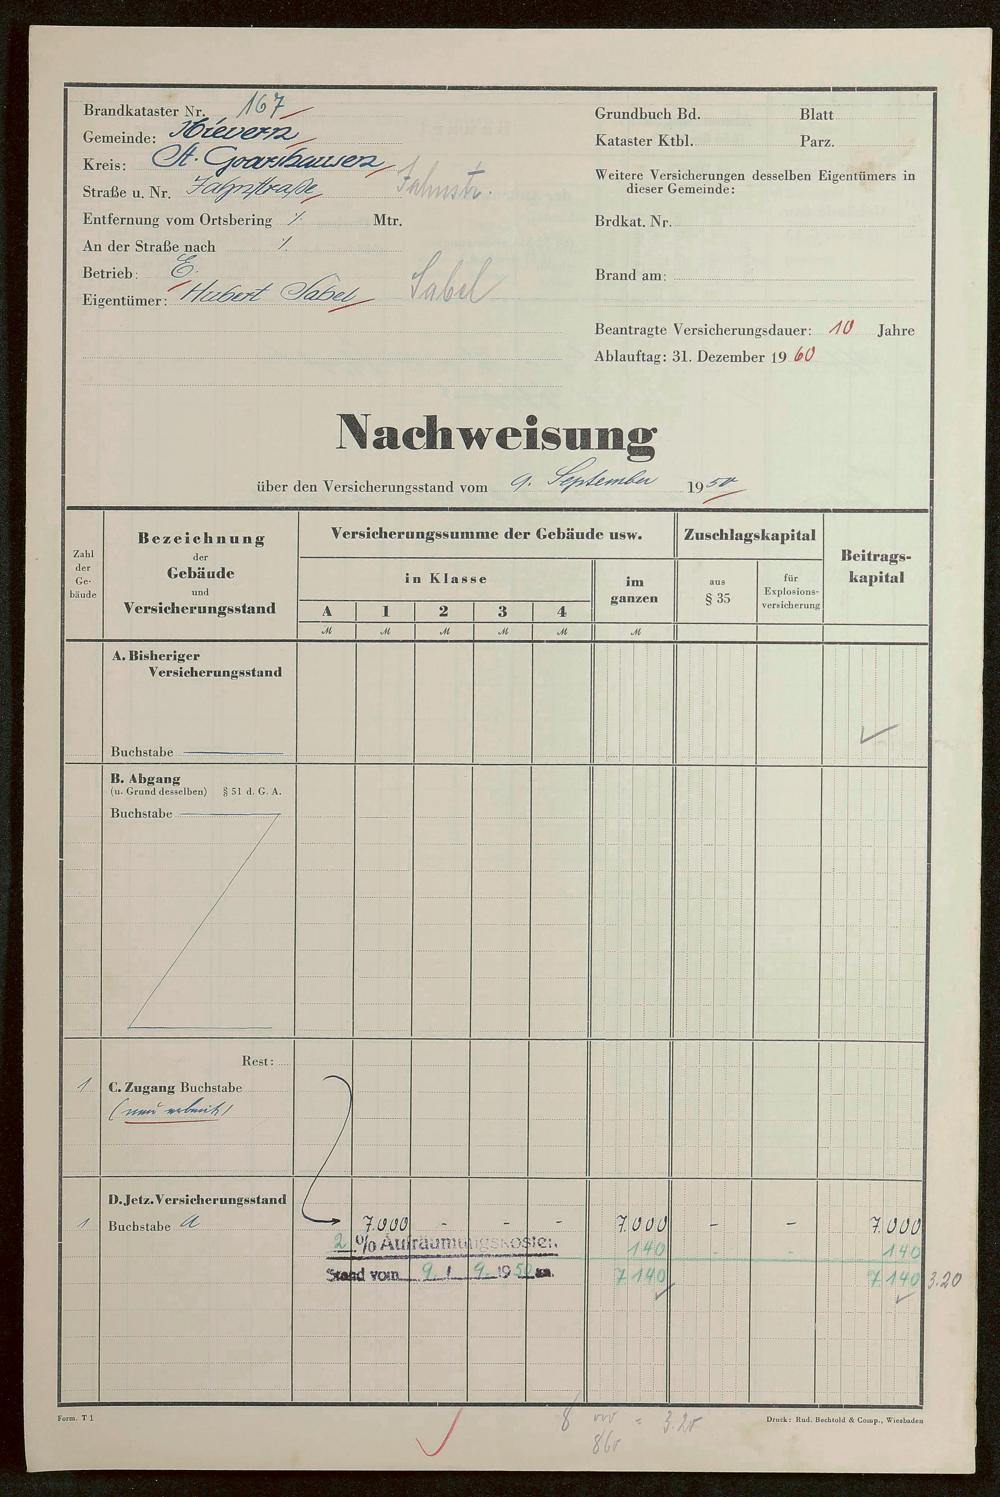 Brandkataster Nr. 167
Gemeinde: Nievern
Kreis: St. Goarshausen
Straße u. Nr. Jahnstraße Jahnstr.
Entfernung vom Ortsbering ⁒ Mtr.
An der Straße nach ⁒
Betrieb: E.
Eigentümer: Hubert Sabel Sabel
Grundbuch Bd. Blatt
Kataster Ktbl. Parz.
Weitere Versicherungen desselben Eigentümers in
dieser Gemeinde:
Brdkat. Nr.
Brand am:
Beantragte Versicherungsdauer: 10 Jahre
Ablauftag: 31. Dezember 19 60
Nachweisung
über den Versicherungsstand vom 9. September 1950
Zahl
der
Ge-
bäude
Bezeichnung
der
Gebäude
und
Versicherungsstand
Versicherungssumme der Gebäude usw.
in Klasse
A 1 2 3 4
im
ganzen
M M M M M M
Zuschlagskapital
aus
§ 35
für
Explosions-
versicherung
Beitrags-
kapital
A. Bisheriger
Versicherungsstand
Buchstabe
B. Abgang
(u. Grund desselben) § 51 d. G. A.
Buchstabe
Rest:
1 C. Zugang Buchstabe
(neu erbaut)
D. Jetz. Versicherungsstand
1 Buchstabe a 7.000 - - - 7.000 - - 7.000
2 % Aufräumungskosten 140 - - 140
Stand vom 9. 9. 1950 an. 7 140 7 140 3.20
Form. T 1
Druck: Rud. Bechtold & Comp., Wiesbaden
8 = 3.20
860